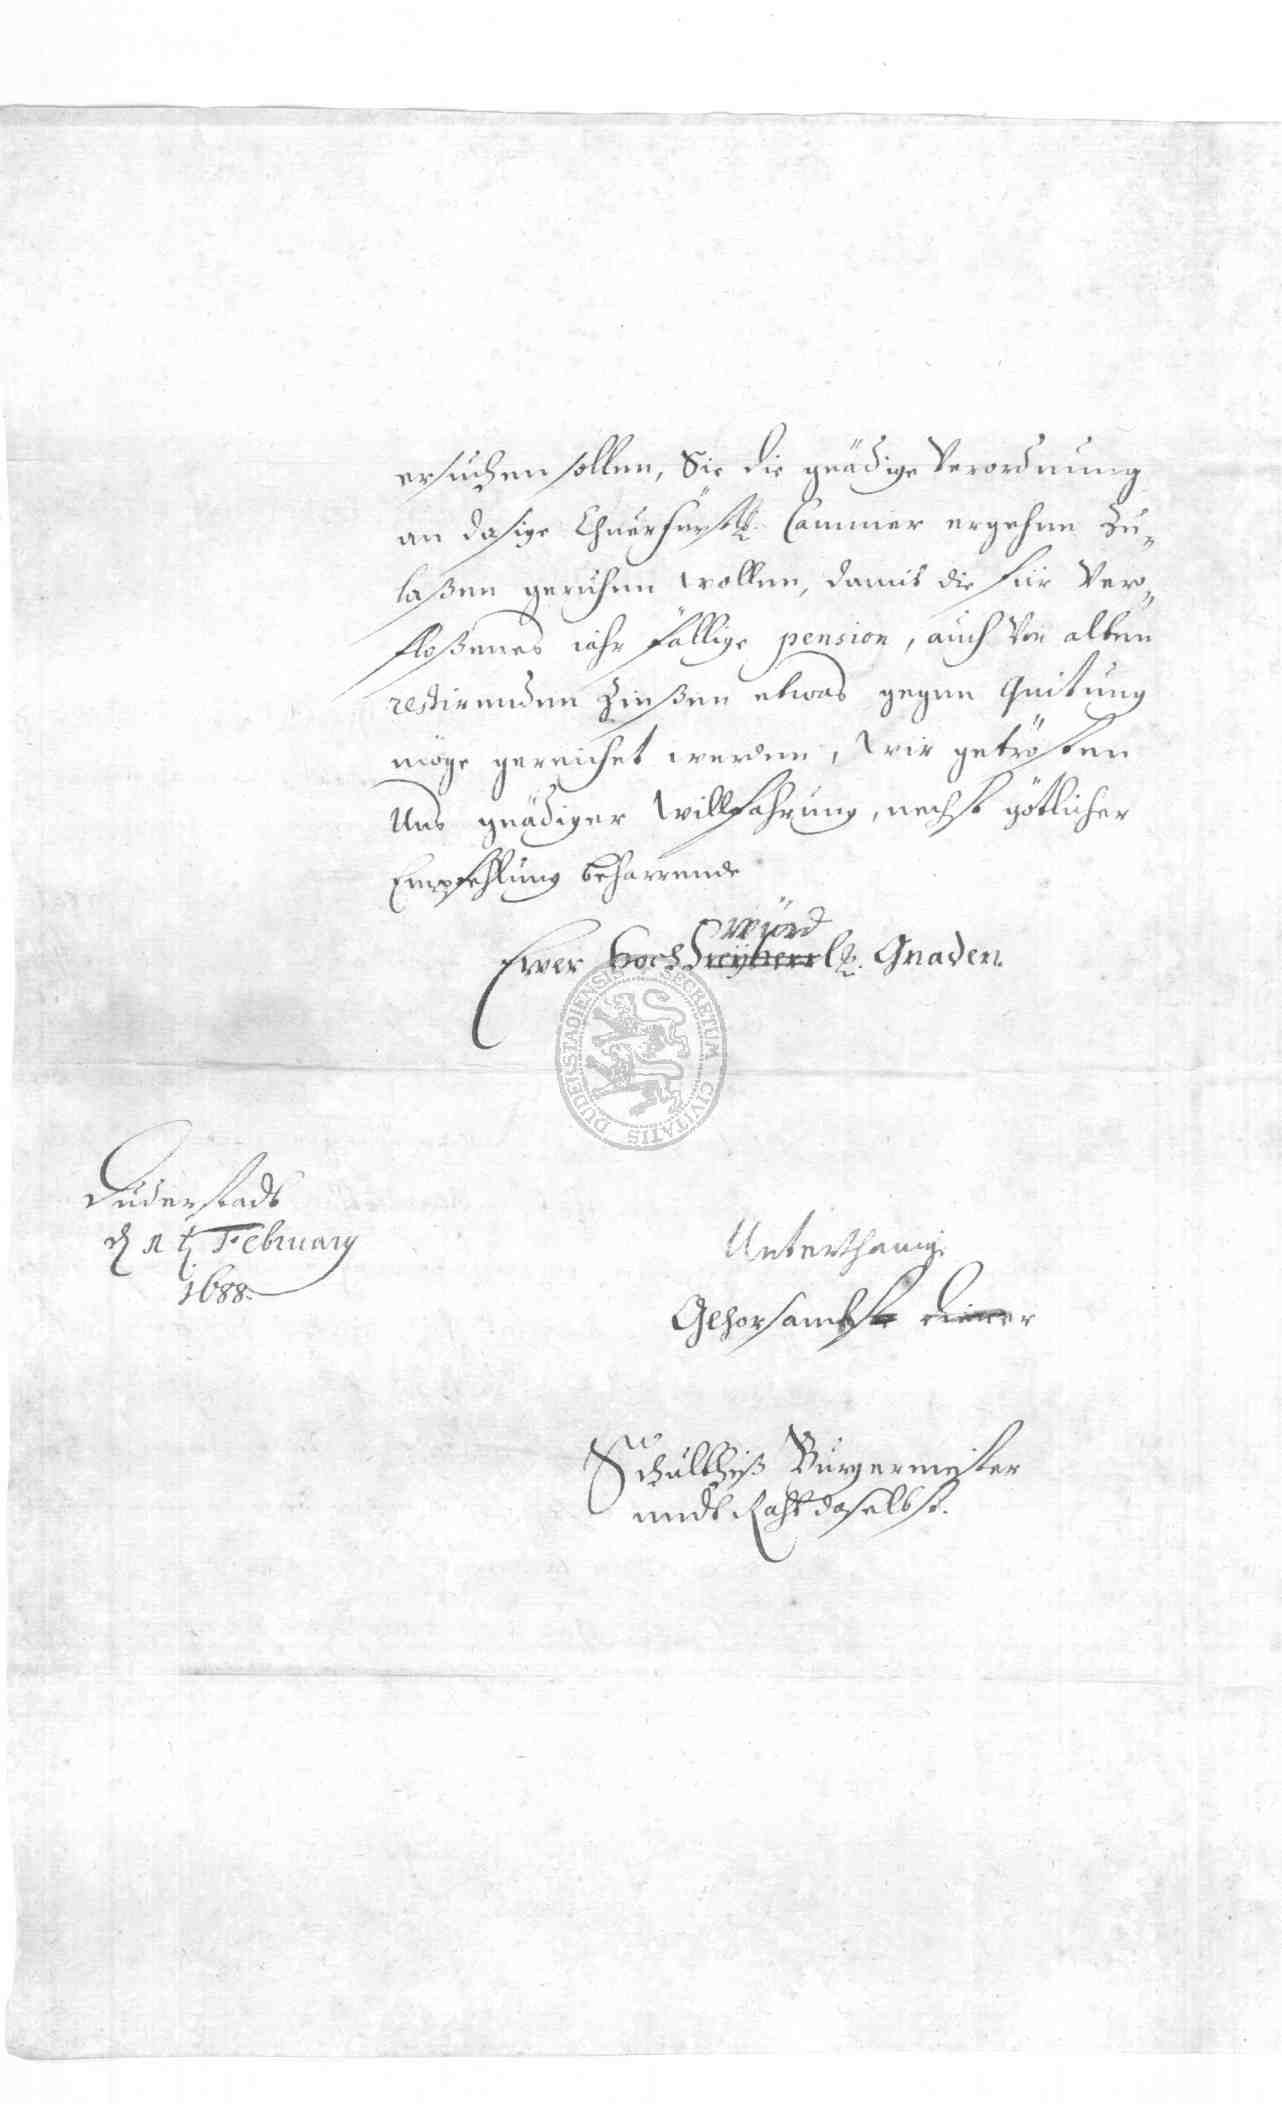 ersuchen sollen, Sie die gnädige Verordnung
an dasige Chuerfürstl. Cammer ergehen zu
laßen geruhen wollen, damit die für ver-
floßenes iahr fällige pension, auch von alten
restirenden Zinßen etwas gegen Quitung
möge gereichet werden, Wir getrösten
Uns gnädiger Willfahrung, nechst götlicher
Empfehlung beharrende
würd
Ewer Hochfreyherrl. Gnaden.
SECRETUM CIVITATIS DUDERSTADIENSIS
Duderstadt
February
1688.
Unterthänig
Gehorsambste diener
Schultheiß Bürgermeister
undt Raht daselbst.